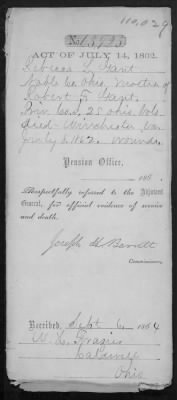 110,029
No.
ACT OF JULY 14, 1862.
Rebecca
Noble Co. Ohio, mother of
Robert F.
Co. 25 Ohio Vols.
Died Winchester Va.
July 6 1862. Wounds
Pension Office,
186 .
Respectfully referred to the Adjutant
General, for official evidence of service
and death.
Joseph H. Barrett
Commissioner.
Received, Sept 6, 1864
Frazier
Caldwell
Ohio